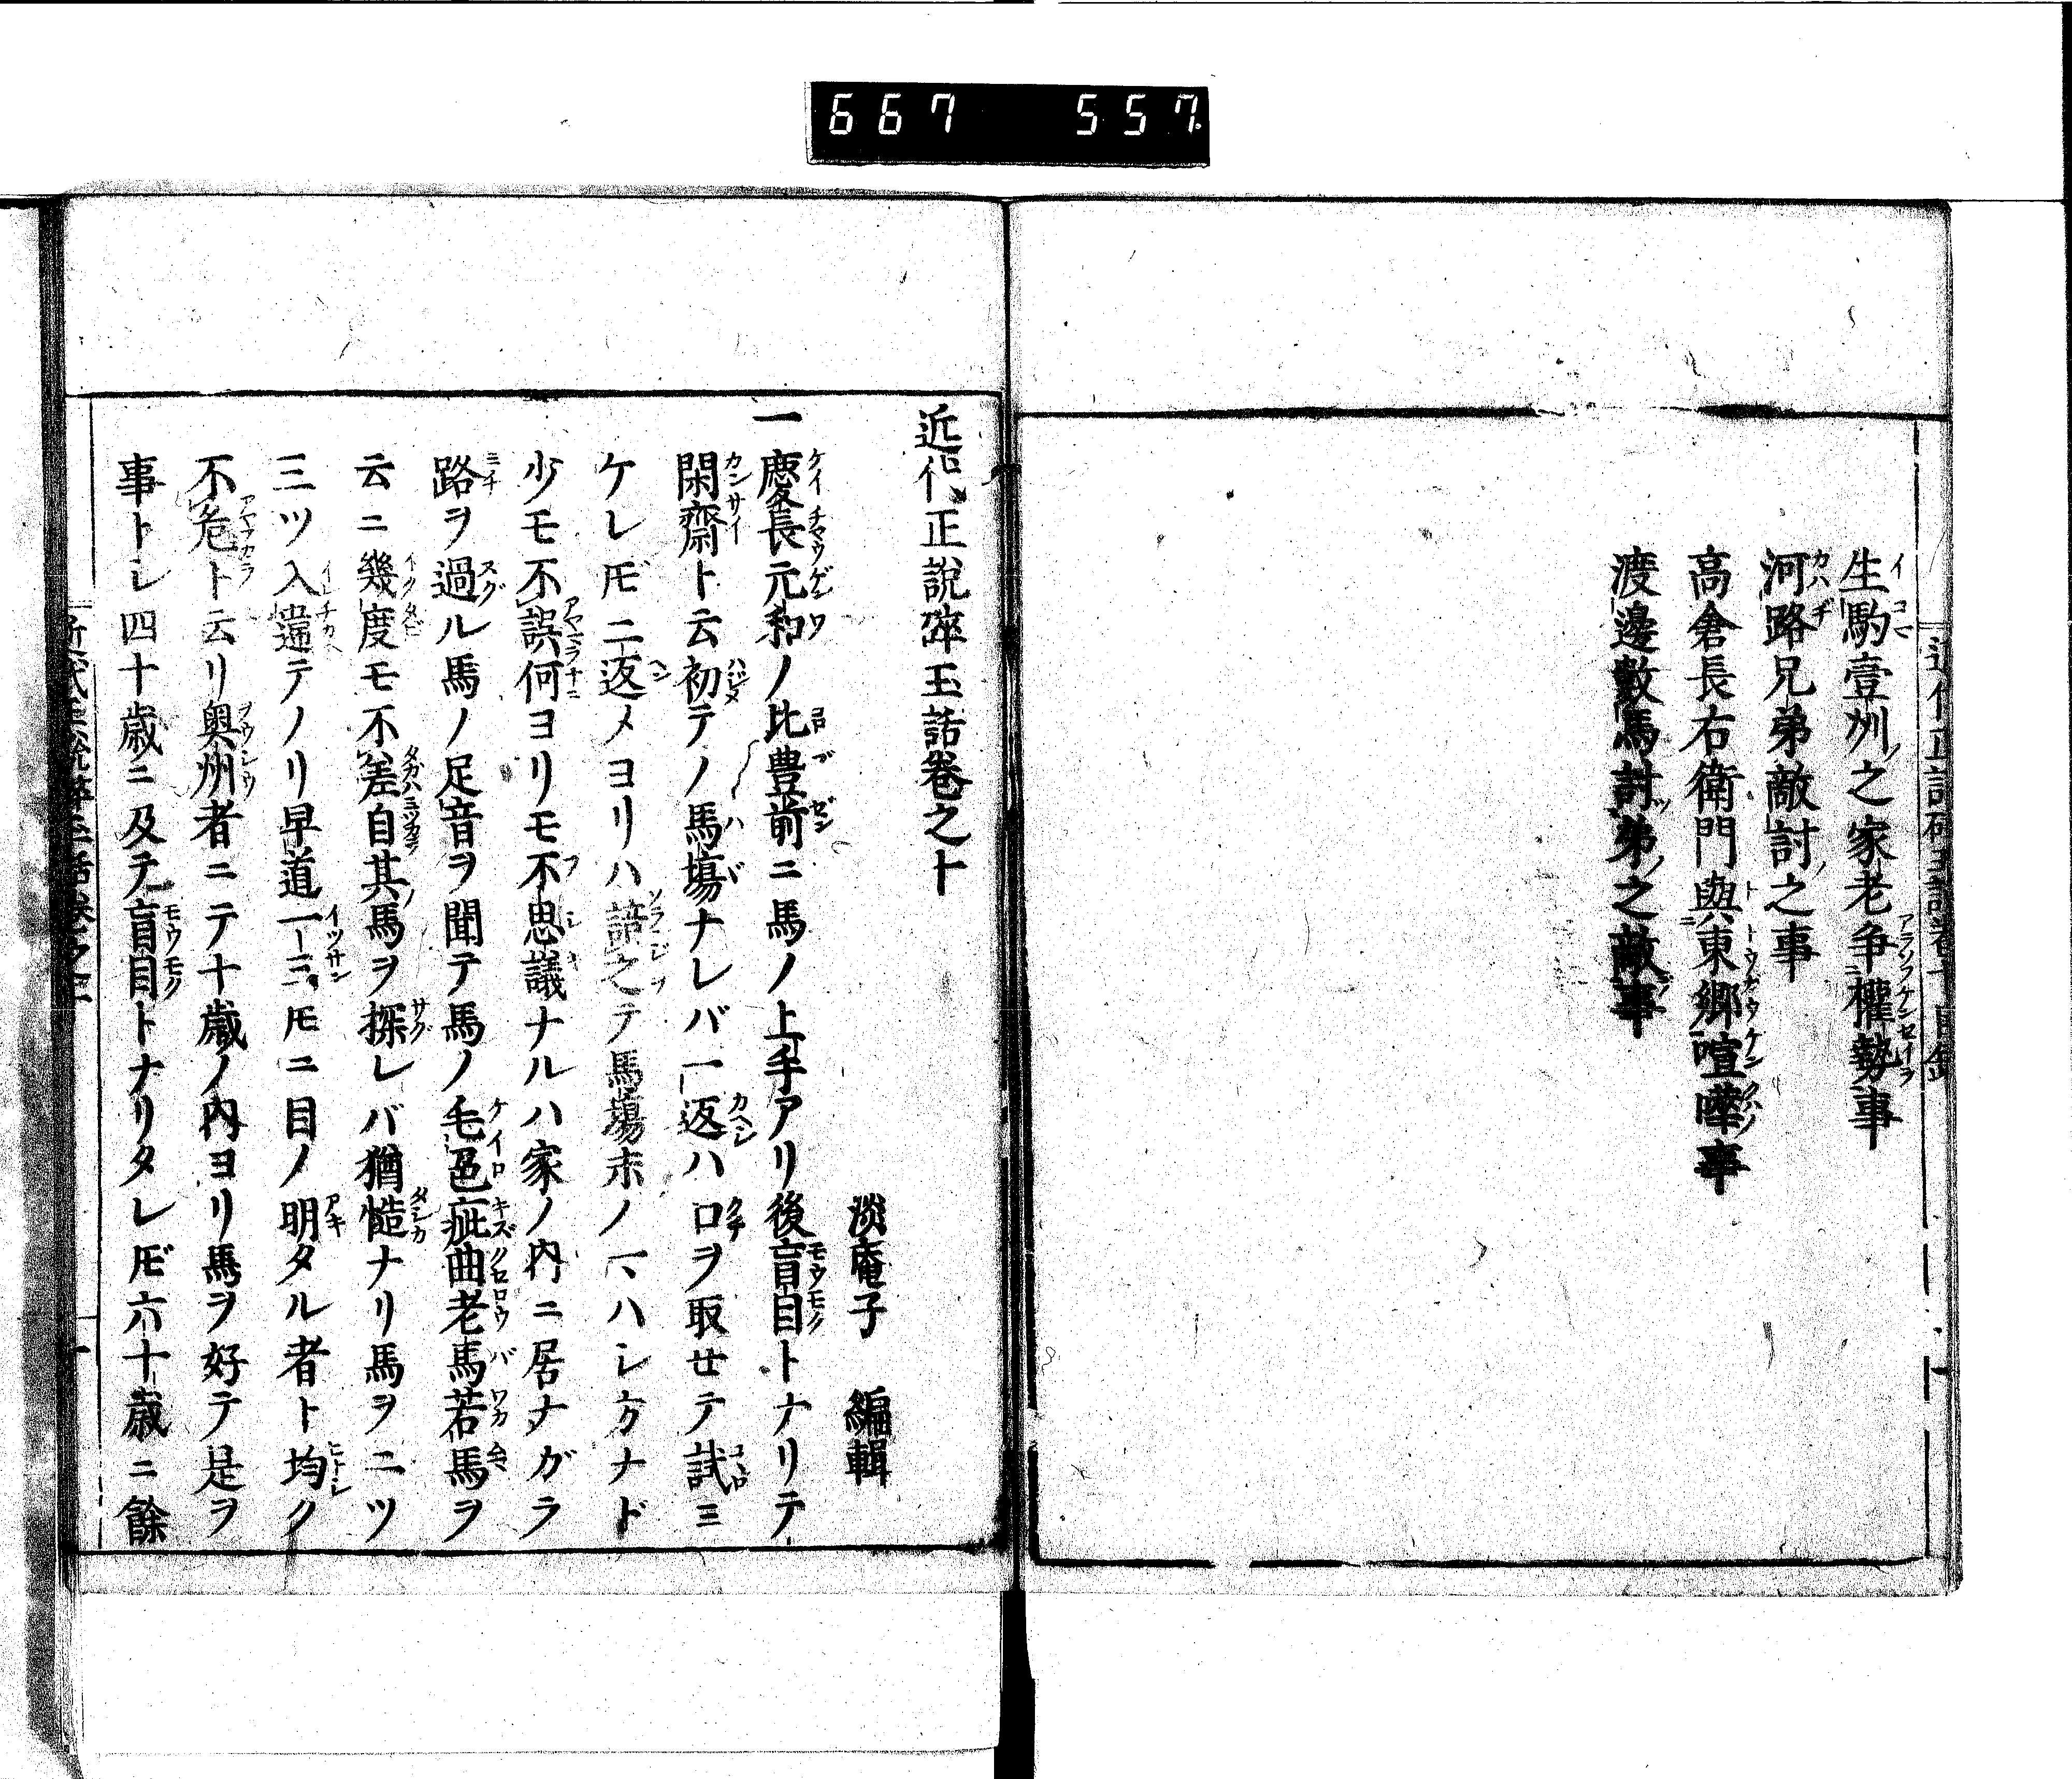 667 557
生駒壹州之家老争權勢事
河路兄弟敵討之事
高倉長右衛門與東郷喧嘩事
渡邊數馬討弟之敵事
近代正說碎玉話卷之十
淡庵子 編輯
一慶長元和ノ比豊前ニ馬ノ上手アリ後盲目トナリテ
閑齋ト云初テノ馬塲ナレバ一返ハ口ヲ取セテ試ミ
ケレ𪜈二返メヨリハ諳之テ馬塲末ノマハシ方ナド
少モ不誤何ヨリモ不思議ナルハ家ノ内ニ居ナガラ
路ヲ過ル馬ノ足音ヲ聞テ馬ノ毛色疵曲老馬若馬ヲ
云ニ幾度モ不差自其馬ヲ探レバ猶慥ナリ馬ヲ二ツ
三ツ入違テノリ早道一三𪜈ニ目ノ明タル者ト均ク
不危ト云リ奥州者ニテ十歳ノ内ヨリ馬ヲ好テ是ヲ
事トシ四十歳ニ及テ盲目トナリタレ𪜈六十歳ニ餘